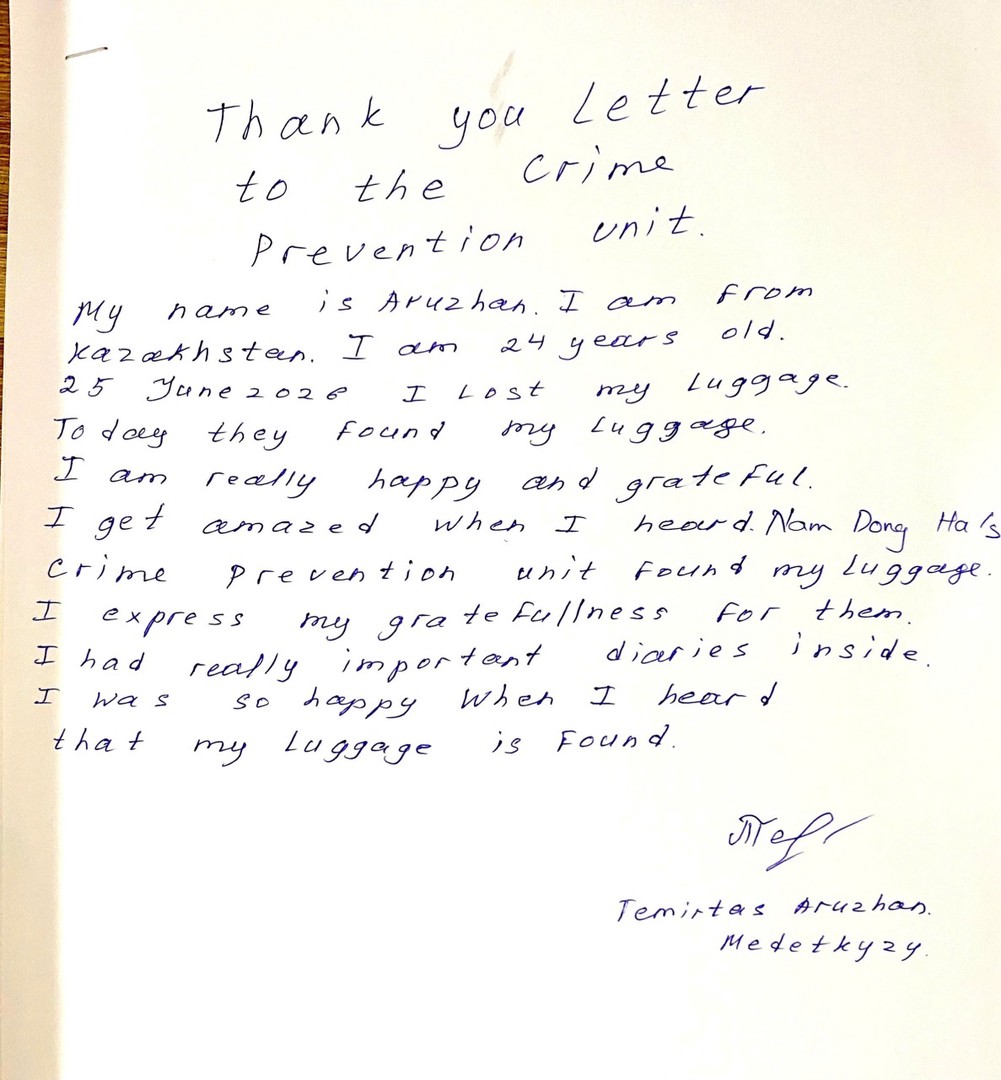 Thank you Letter
to the Crime
Prevention unit.
My name is Aruzhan. I am from
Kazakhstan. I am 24 years old.
25 June 2026 I Lost my Luggage.
Today they found my Luggage.
I am really happy and grateful.
I get amazed when I heard. Nam Dong Ha's
Crime Prevention unit found my Luggage.
I express my gratefullness for them.
I had really important diaries inside.
I was so happy when I heard
that my Luggage is Found.
Temirtas Aruzhan.
Medetkyzy.